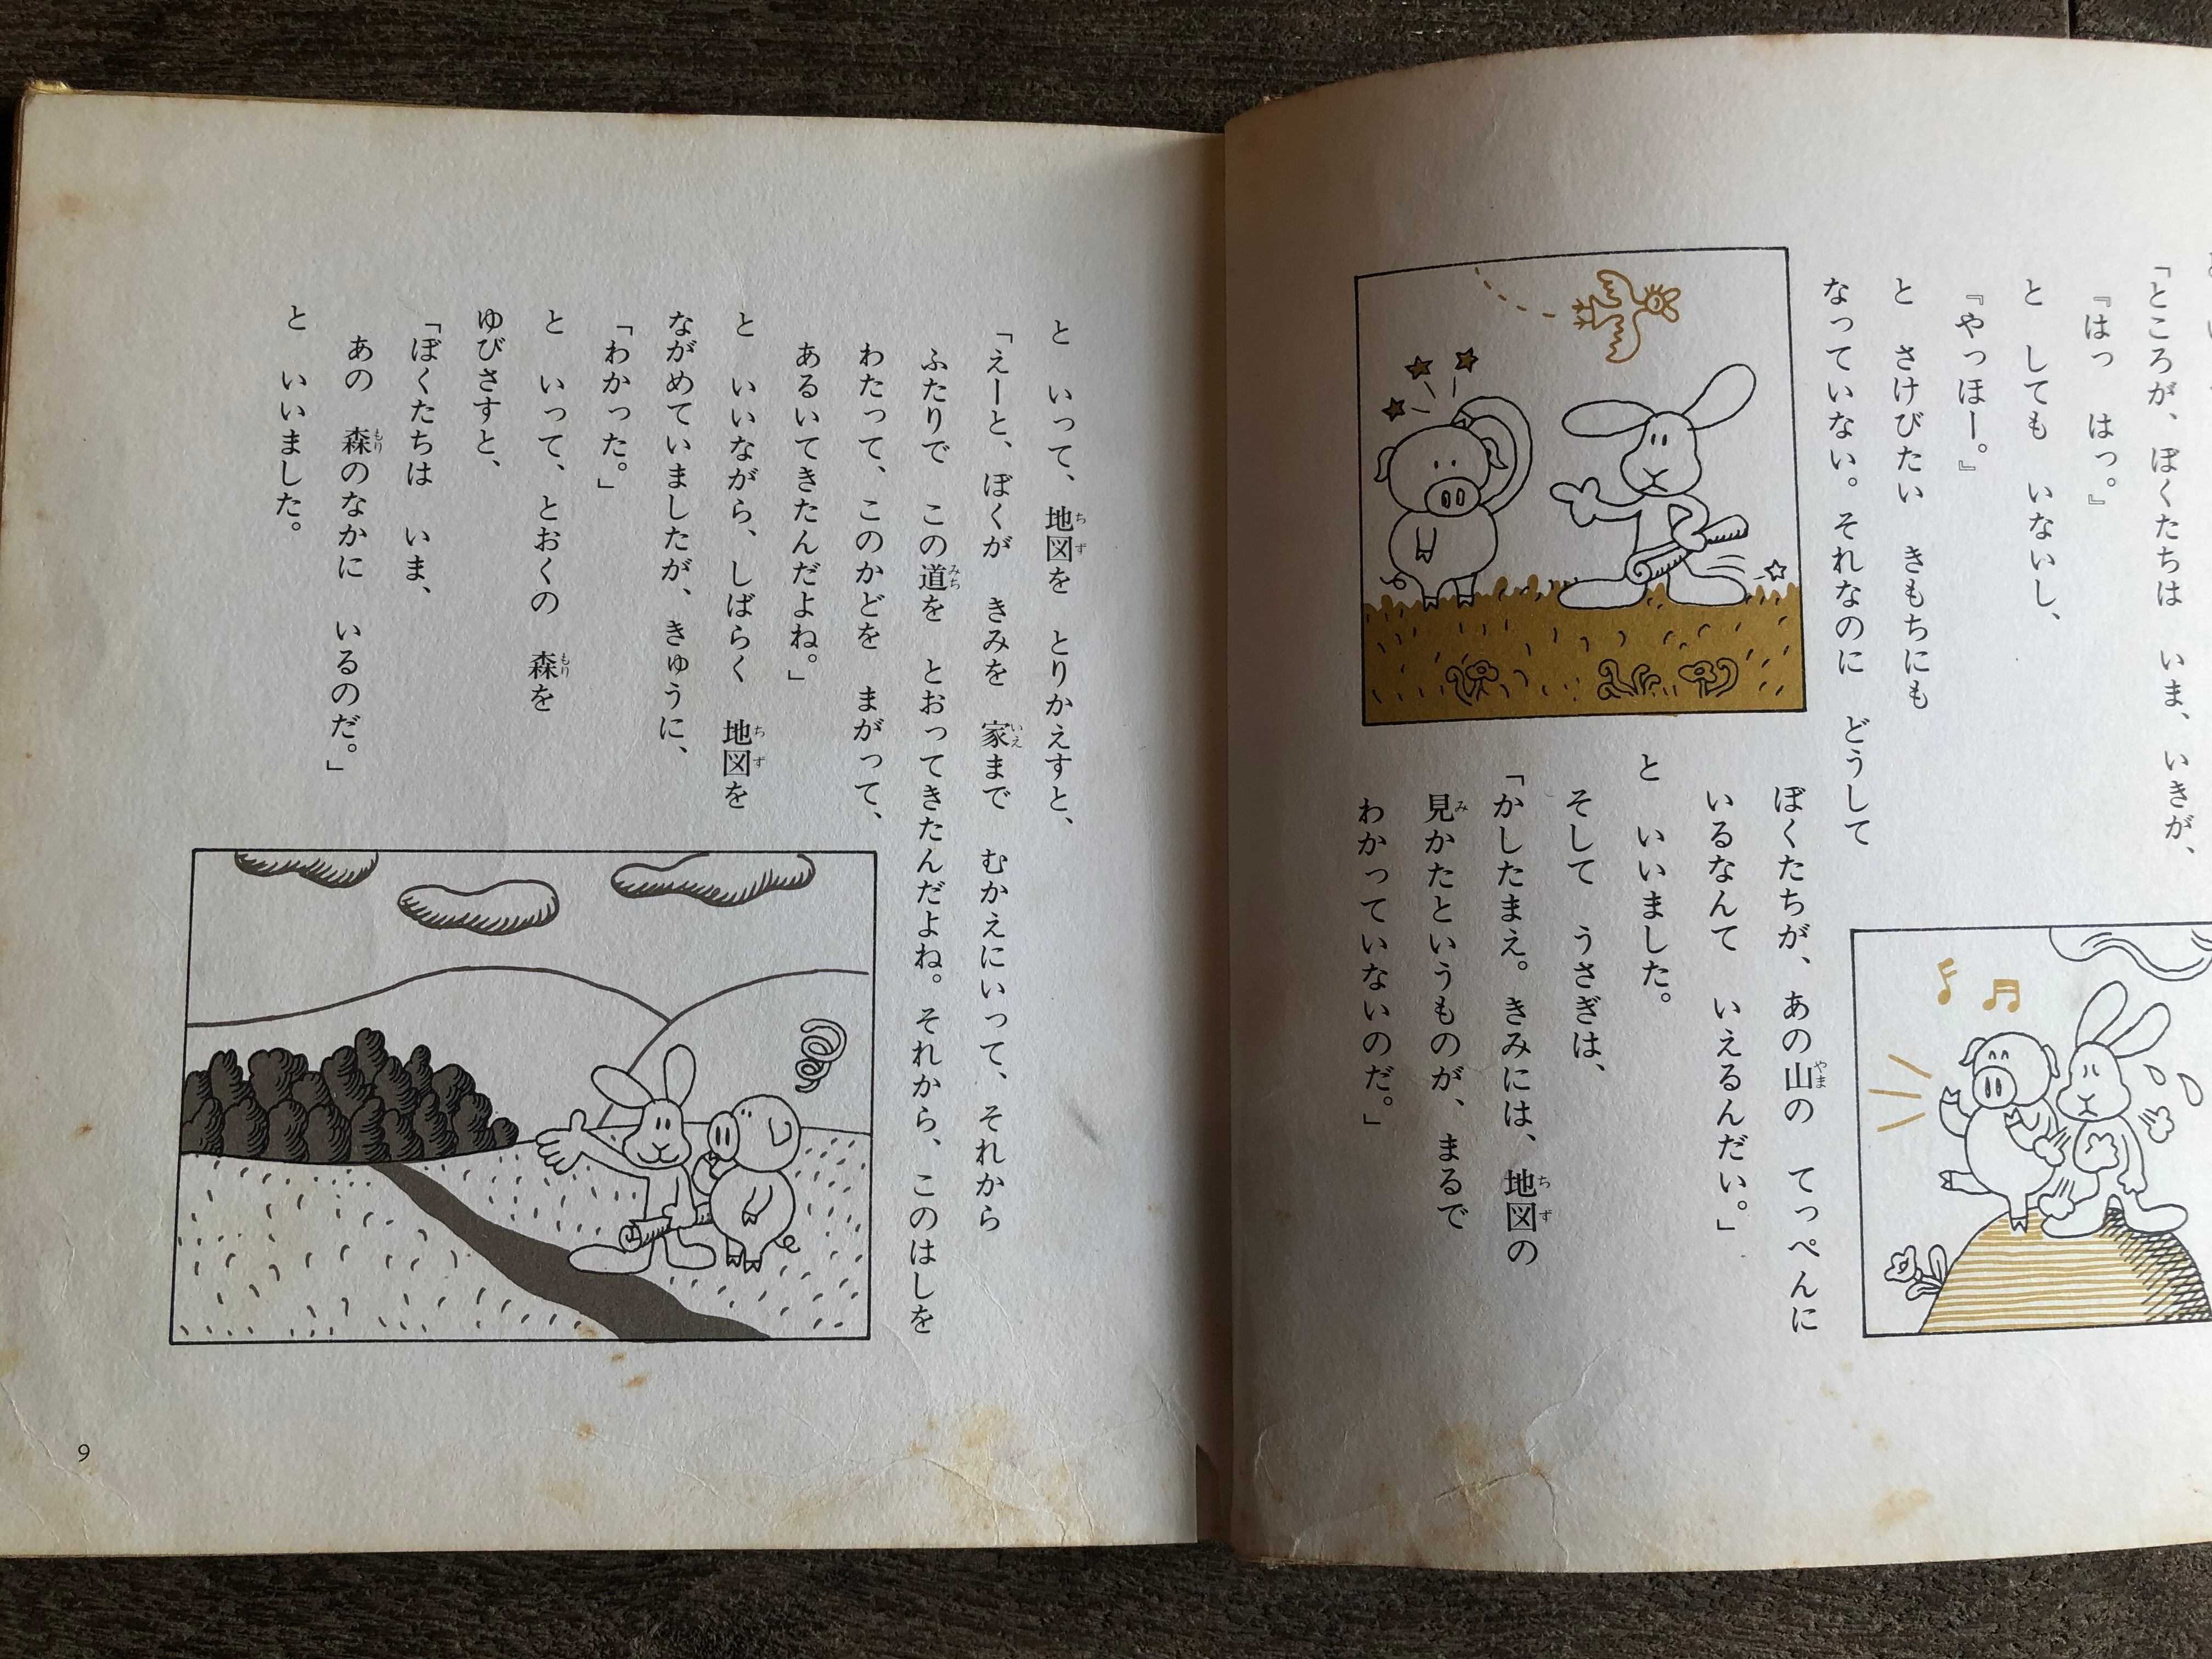 「ところが、ぼくたちは　いま、いきが、
『はっ　はっ。』
と　しても　いないし、
『やっほー。』
と　さけびたい　きもちにも
なっていない。それなのに　どうして
ぼくたちが、あの山の　てっぺんに
いるなんて　いえるんだい。」
と　いいました。
そして　うさぎは、
「かしたまえ。きみには、地図の
見かたというものが、まるで
わかっていないのだ。」
と　いって、地図を　とりかえすと、
「えーと、ぼくが　きみを　家まで　むかえにいって、それから
ふたりで　この道を　とおってきたんだよね。それから、このはしを
わたって、このかどを　まがって、
あるいてきたんだよね。」
と　いいながら、しばらく　地図を
ながめていましたが、きゅうに、
「わかった。」
と　いって、とおくの　森を
ゆびさすと、
「ぼくたちは　いま、
あの　森のなかに　いるのだ。」
と　いいました。
9